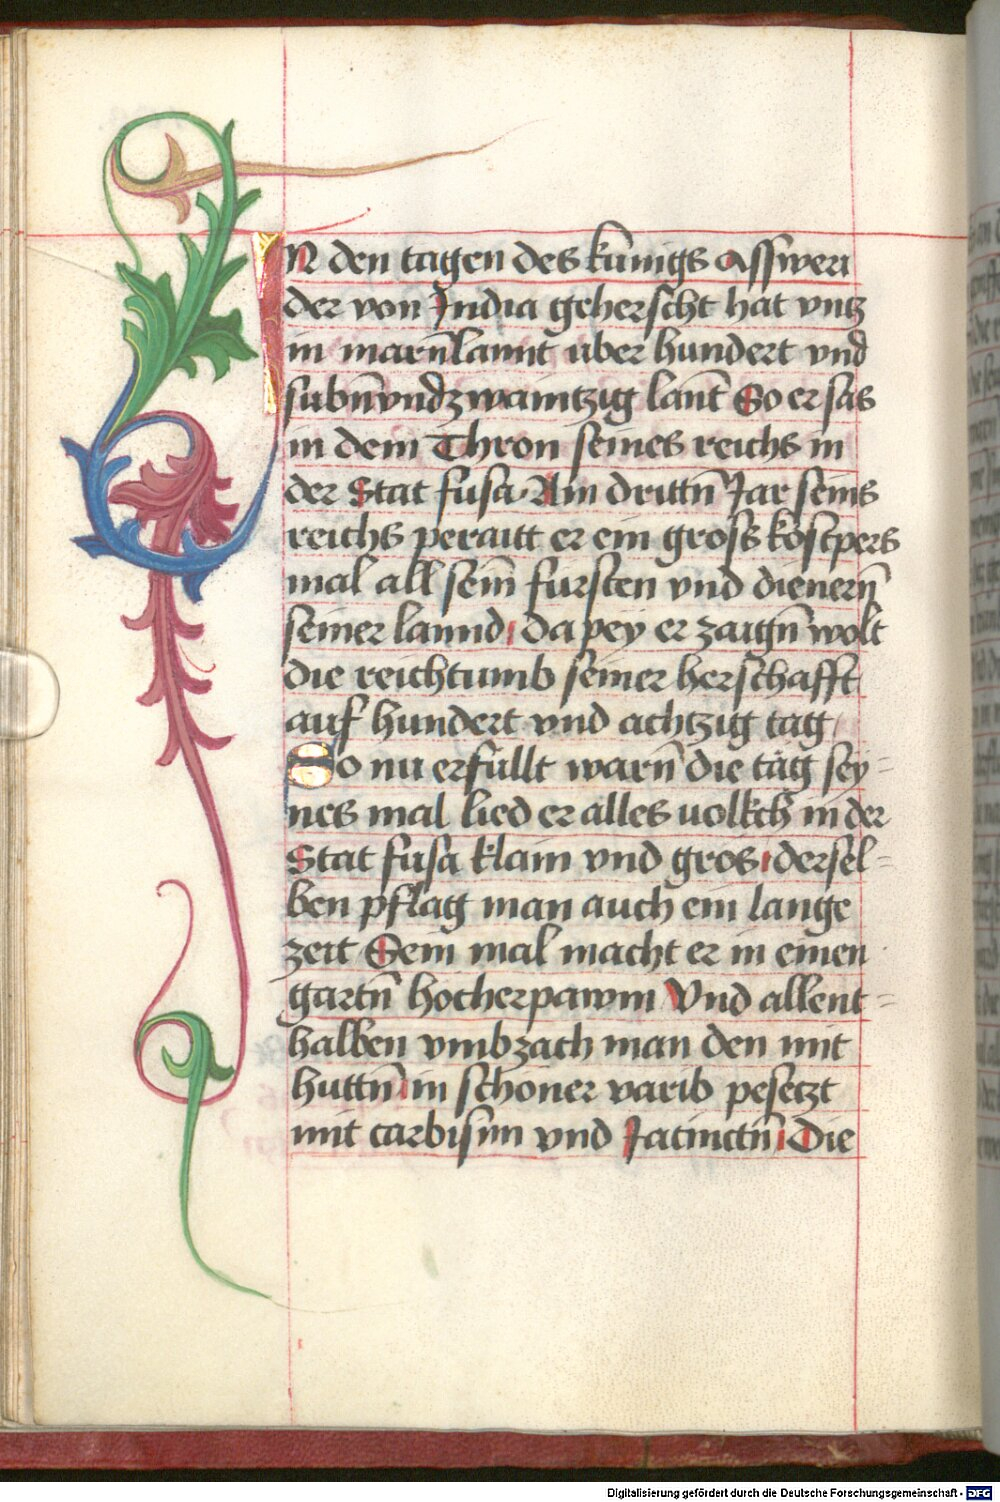 IN den tagen des kunigs Assweri
der von India geherscht hat vntz
in marnlannt uber hundert vnd
sibnvndzwaintzig lant So er sas
in dem Thron seines reichs in
der Stat susa Am drittn Jar seins
reichs peraitt er ein gross kostpers
mal all sein fursten vnd dienern
seiner lannd da pey er zaign wolt
die reichtumb seiner herschafft
auf hundert vnd achtzig tag
So nu erfullt warn die tag sey=
nes mal lied er alles uolkch in der
Stat susa klain vnd gros dersel=
ben pflag man auch ein lange
zeit Sein mal macht er in einen
gartn hocher pawm Vnd allent=
halben vmbzach man den mit
huttn in schoner varib pesetzt
mit carbisinn vnd Jacinctn Die
Digitalisierung gefördert durch die Deutsche Forschungsgemeinschaft - DFG